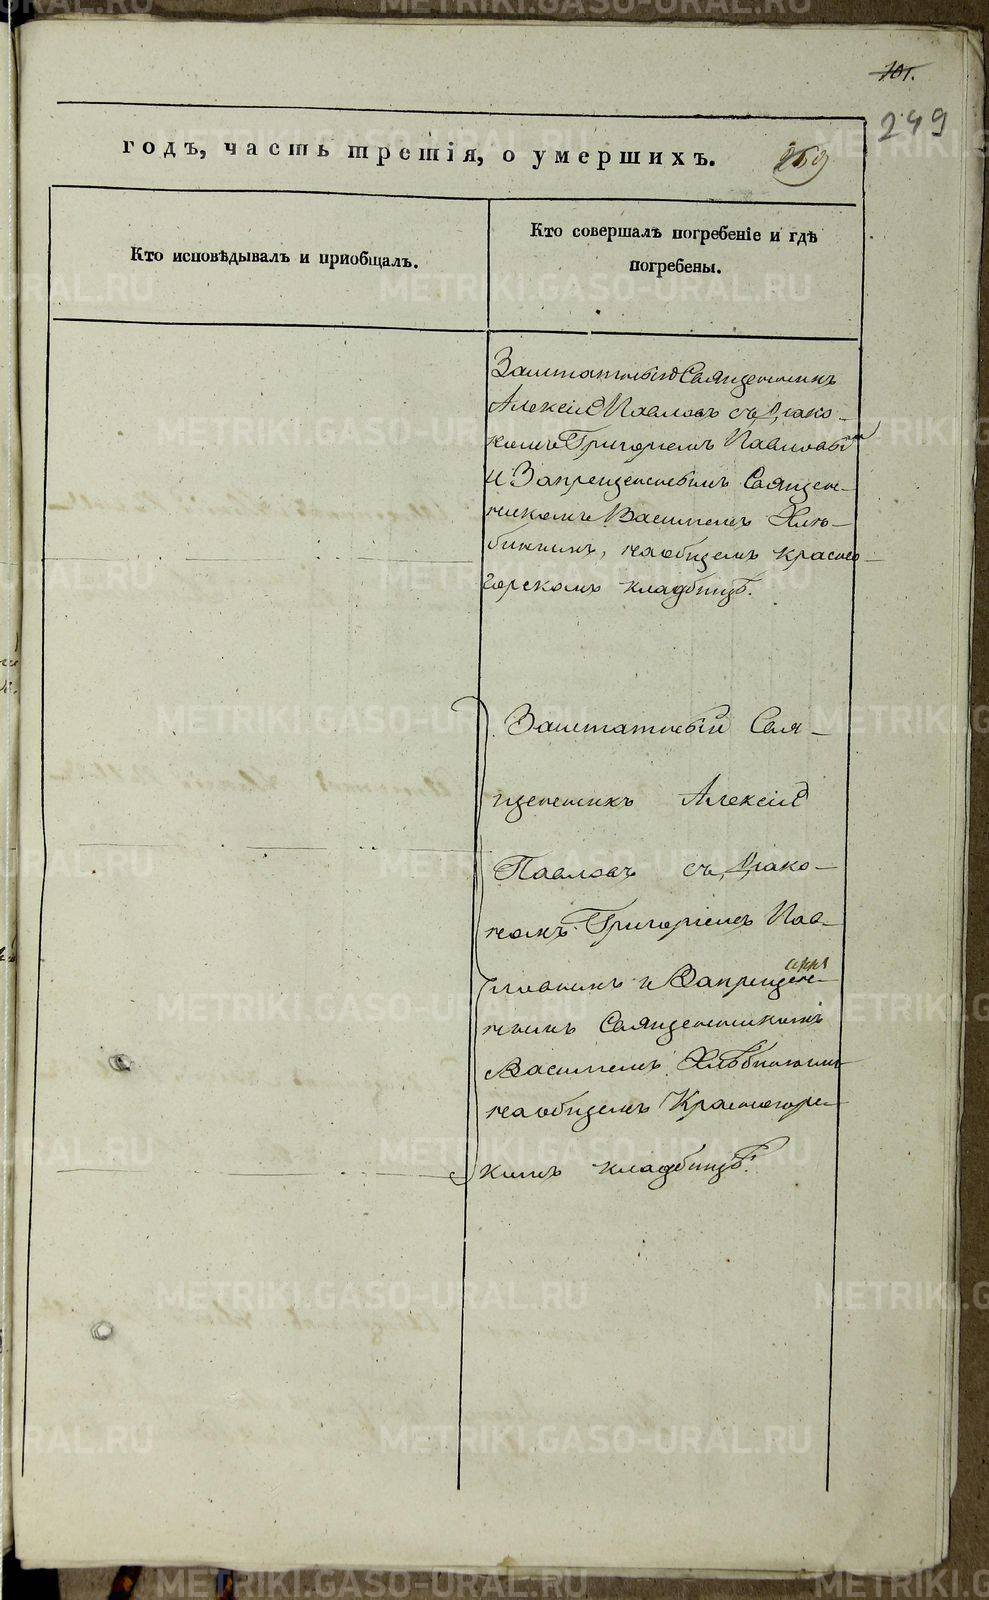 101.
249
годъ, часть третія, о умершихъ.
259
Кто исповѣдывалъ и пріобщалъ.
Кто совершалъ погребеніе и гдѣ
погребены.
Заштатный Священникъ
Алексій Павловъ съ Діако-
номъ Григоріемъ Павловымъ
и Запрещеннымъ Священ-
никомъ Василіемъ Хлѣ-
бинымъ, на общемъ красно-
горскомъ кладбищѣ.
Заштатный Свя-
щенникъ Алексій
Павловъ съ Діако-
номъ Григоріемъ Пав-
ловымъ и Запрещен-
нымъ Священникомъ
Василіемъ
на общемъ Красногорс-
комъ кладбищѣ.
METRIKI.GASO-URAL.RU